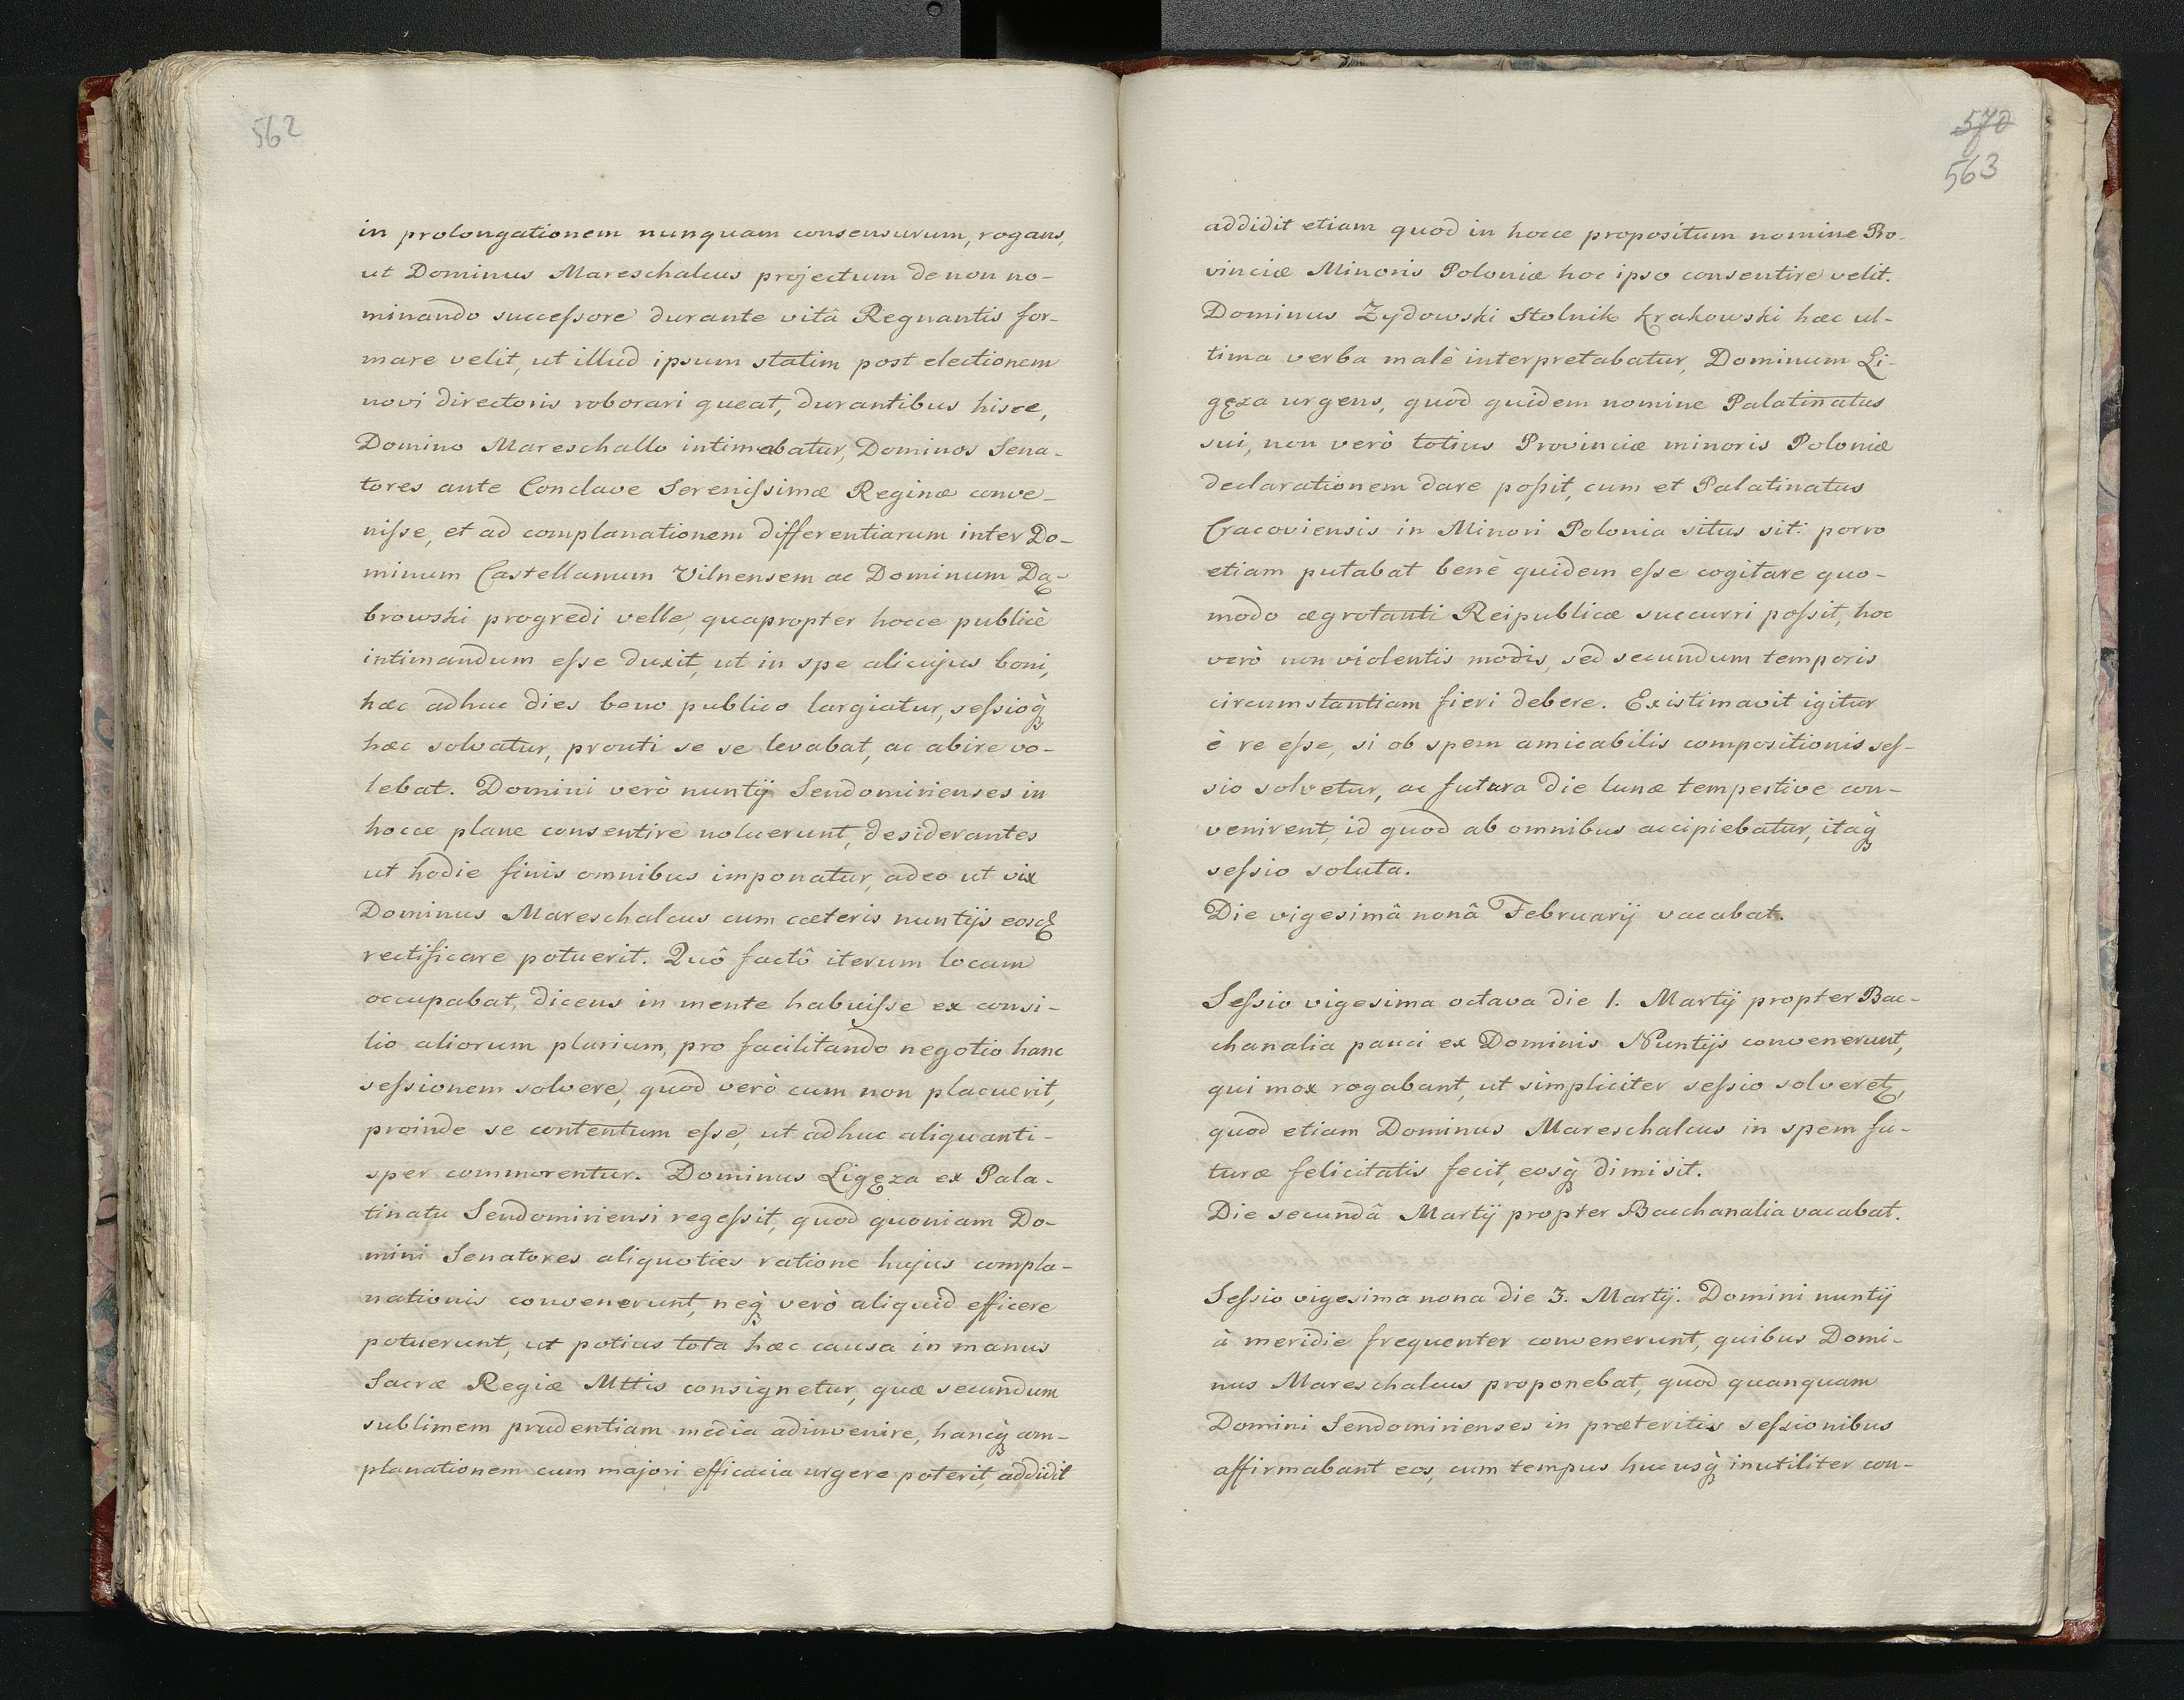 562
in prolongationem nunquam consensurum, rogans,
ut Dominus Mareschalcus projectum de non no-
minando succeſsore durante vitâ Regnantis for-
mare velit, ut illud ipsum statim post electionem
novi directoris roborari queat, durantibus hisce,
Domino Mareschallo intimabatur, Dominos Sena-
tores ante Conclave Sereniſsimæ Reginæ conve-
niſse, et ad complanationem differentiarum inter Do-
minum Castellanum Vilnensem ac Dominum Dą-
browski progredi velle, quapropter hocce publicè
intimandum eſse duxit, ut in spe alicujus boni,
hæc adhuc dies bono publico largiatur, seſsioq̀ꝫ
hæc solvatur, prouti se se levabat, ac abire vo-
lebat. Domini verò nuntÿ Sendomirienses in
hocce plane consentire noluerunt, desiderantes
ut hodie finis omnibus imponatur, adeo ut vix
Dominus Mareschalcus cum cæteris nuntijs eosdꝫ
rectificare potuerit. Quô factô iterum locum
occupabat, dicens in mente habuiſse ex consi-
lio aliorum plurium, pro facilitando negotio hanc
seſsionem solvere, quod verò cum non placuerit,
proinde se contentum eſse, ut adhuc aliquanti-
sper commorentur. Dominus Ligęza ex Pala-
tinatu Sendomiriensi regeſsit, quod quoniam Do-
mini Senatores aliquoties ratione hujus compla-
nationis convenerunt, neq̀ꝫ verò aliquid efficere
potuerunt, ut potius tota hæc causa in manus
Sacræ Regiæ Mttis consignetur, quæ secundum
sublimem prudentiam media adinvenire, hancq̀ꝫ com-
planationem cum majori efficacia urgere poterit, addidit
570
563
addidit etiam quod in hocce propositum nomine Pro-
vinciæ Minoris Poloniæ hoc ipso consentire velit.
Dominus Zydowski Stolnik Krakowski hæc ul-
tima verba malè interpretabatur, Dominum Li-
gęza urgens, quod quidem nomine Palatinatus
sui, non verò totius Provinciæ minoris Poloniæ
declarationem dare poſsit, cum et Palatinatus
Cracoviensis in Minori Polonia situs sit: porro
etiam putabat benè quidem eſse cogitare quo-
modo ægrotanti Reipublicæ succurri poſsit, hoc
verò non violentis modis, sed secundum temporis
circumstantiam fieri debere. Existimavit igitur
è re eſse, si ob spem amicabilis compositionis seſ-
sio solvetur, ac futura die lunæ tempestive con-
venirent, id quod ab omnibus accipiebatur, itaq̀ꝫ
seſsio soluta.
Die vigesimâ nonâ Februarÿ vacabat.
Seſsio vigesima octava die 1. Martÿ propter Bac-
chanalia pauci ex Dominis Nuntijs convenerunt,
qui mox rogabant, ut simpliciter seſsio solveretꝫ,
quod etiam Dominus Mareschalcus in spem fu-
turæ felicitatis fecit, eosq̀ꝫ dimisit.
Die secundâ Martÿ propter Bacchanalia vacabat.
Seſsio vigesima nona die 3. Martÿ. Domini nuntÿ
à meridie frequenter convenerunt, quibus Domi-
nus Mareschalcus proponebat, quod quanquam
Domini Sendomirienses in præteritis seſsionibus
affirmabant eos, cum tempus hucusq̀ꝫ inutiliter con-